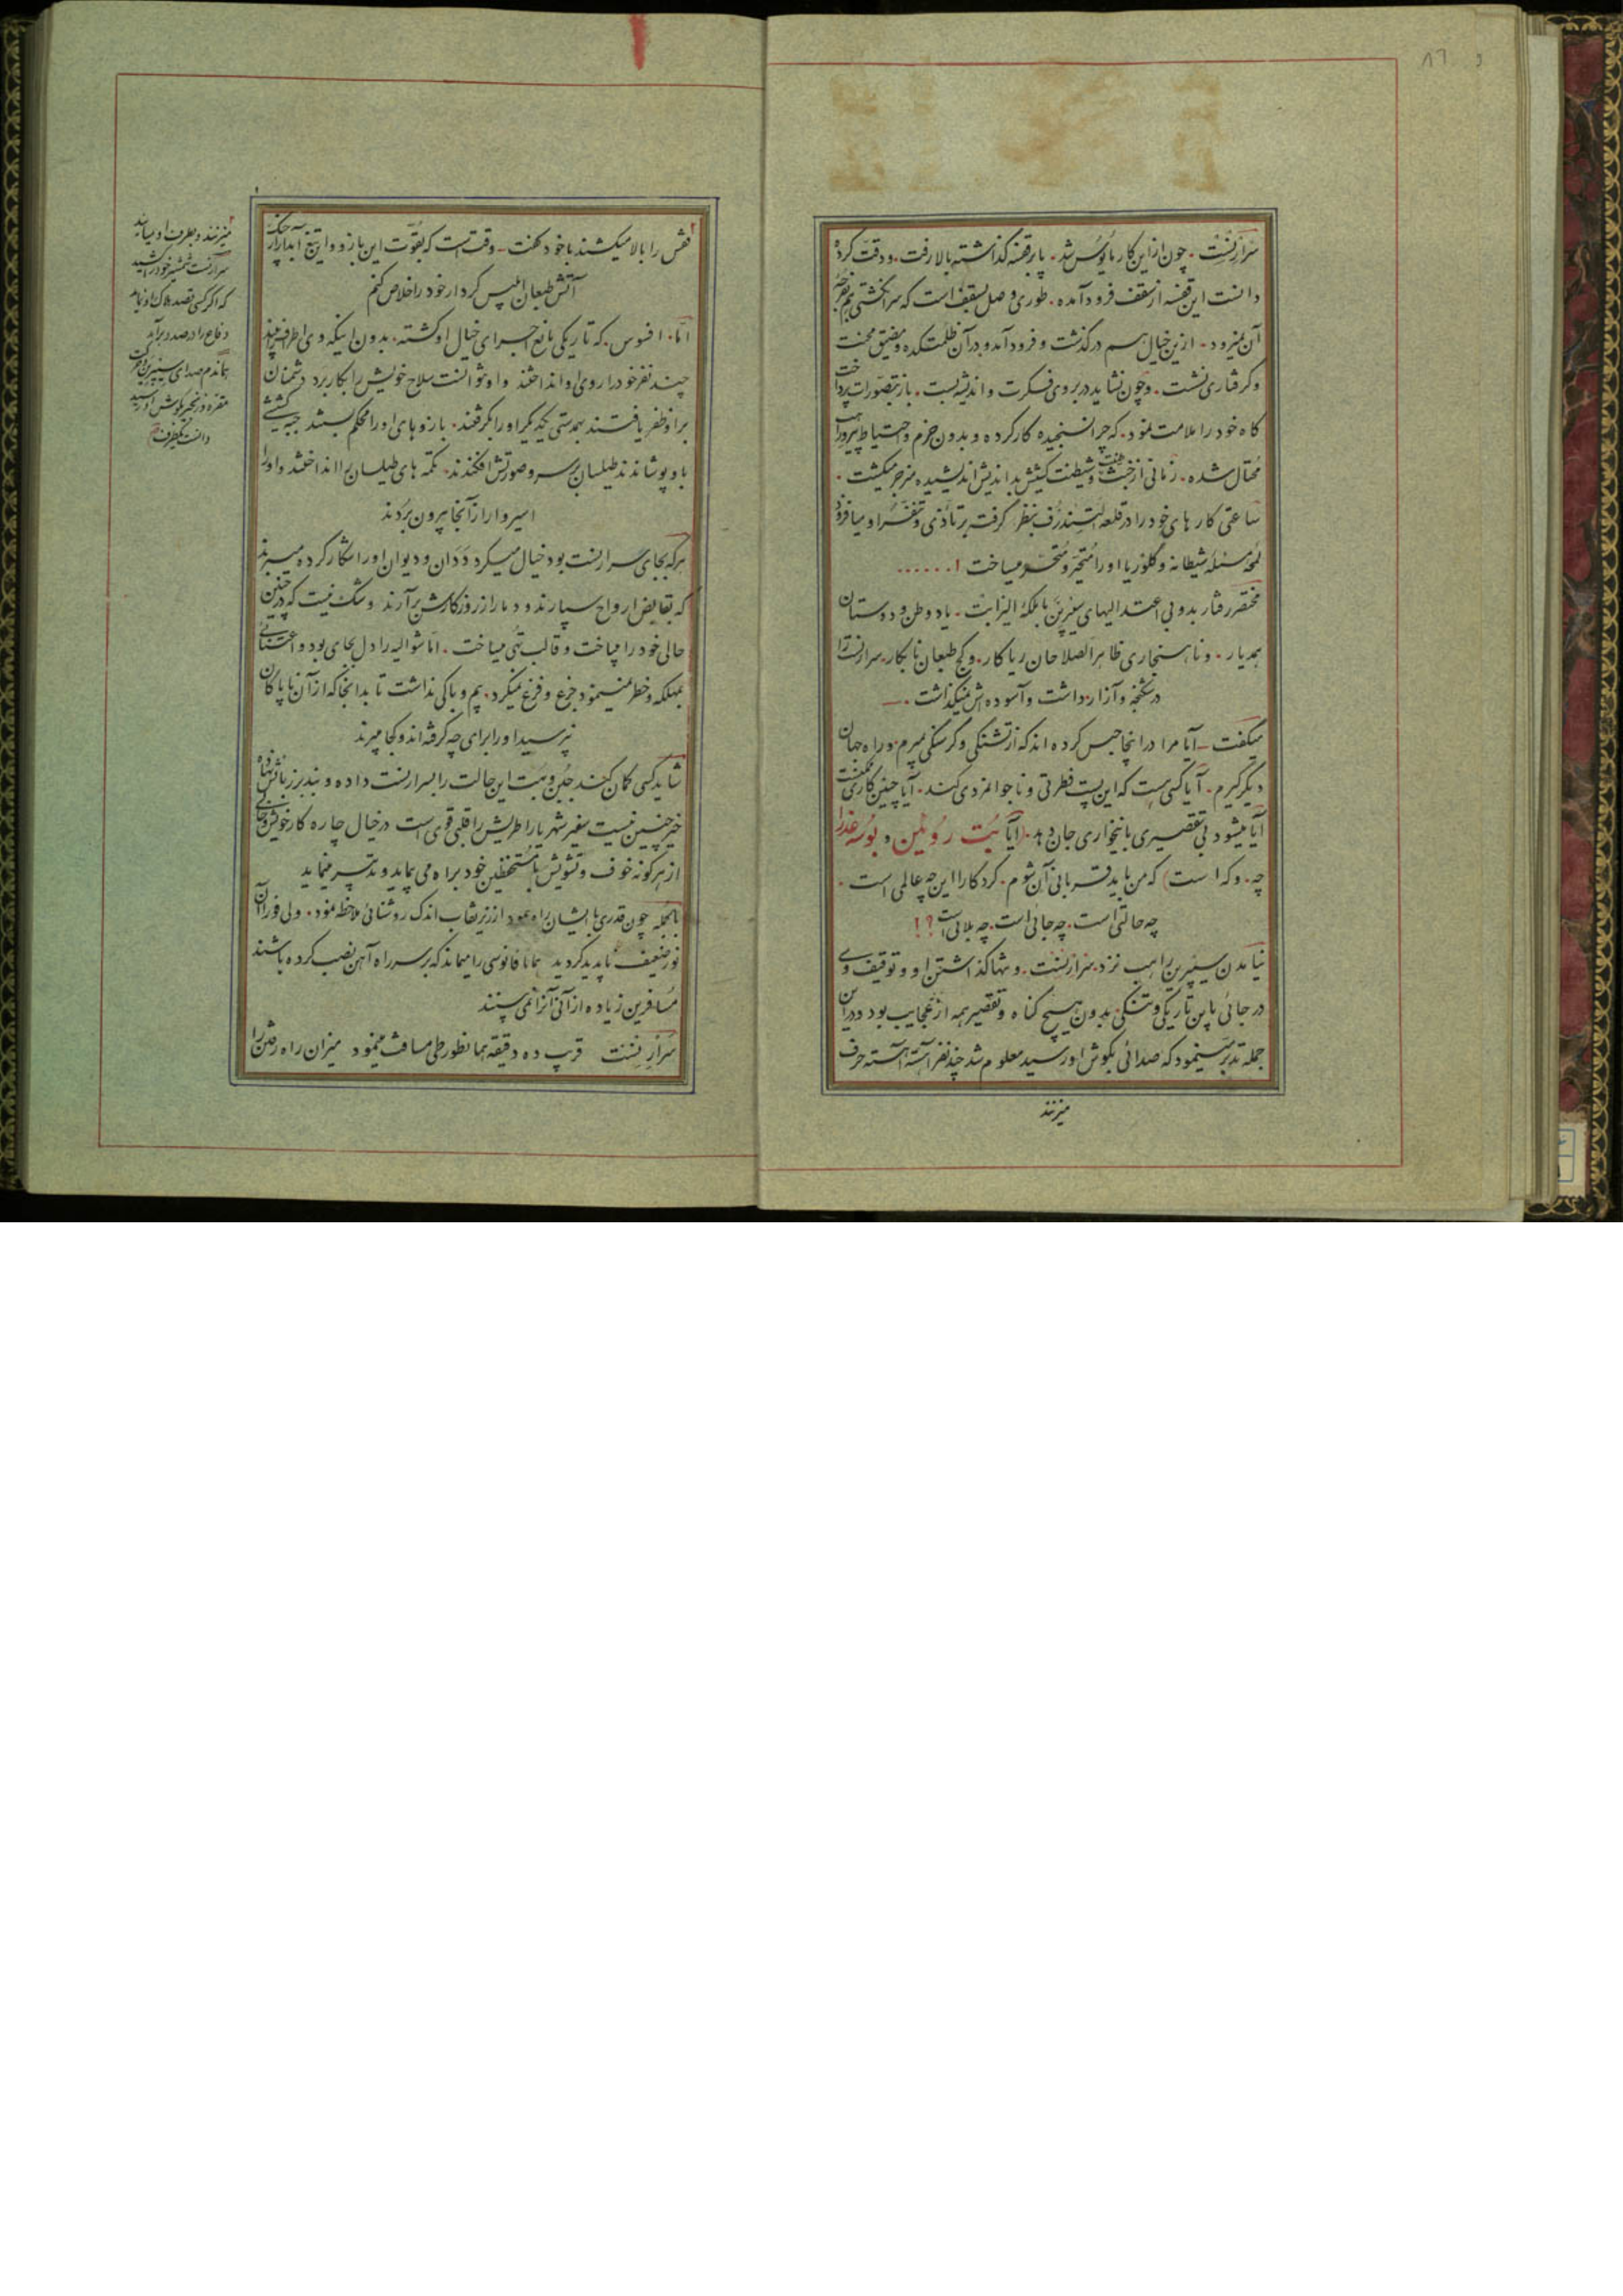 سرارنست . چون از این کار مأیوس شد . پا بر قفسه گذاشته بالا رفت . و دقت کرده
دانست این قفسه از سقف فرود آمده . طوری وصل بسقف است که سر انگشتی هم بفرجه
آن نمیرود . ازین خیال هم درگذشت و فرود آمد و در آن ظلمتکده و مضیق محنت
و گرفتاری نشست . و چون نشاید در بروی فکرت و اندیشه بست . باز بتصورات پرداخت
گاه خود را ملامت نمود . که چرا نسنجیده کار کرده و بدون حزم و احتیاط پیرو راهب
محتال شده . زمانی از خبث و شیطنت کشیش بداندیش اندیشیده منزجر میگشت .
ساعتی کارهای خود را در قلعه بنظر گرفته بر تأذی و تغیر او میافزود
شیطانه و گلوریا او را متحیر و متحسر میساخت ! . . . . . .
مختصر رفتار بد و بی اعتدالیهای سفیرین با ملکه الیزابت . یاد وطن و دوستان
همدیار . و ناهنجاری ظاهر الصلاحان ریاکار . و کج طبعان نابکار . سرارنست را
در شکنجه و آزار داشت و آسوده اش نمیگذاشت . —
میگفت — آیا مرا در اینجا حبس کرده اند که از تشنگی و گرسنگی بمیرم و راه جهان
دیگر گیرم . آیا کسی هست که این پست فطرتی و ناجوانمردی کند . آیا چنین کاری ممکنست
آیا میشود بی تقصیری باینخواری جان دهد . (آیا بُت رُوئین و بوسه عذرا
چه . و که است) که من باید قربانی آن شوم . کردکارا این چه عالمی است .
چه حالتی است . چه جائی است . چه بلائی است ؟ !
نیامدن سیپرین راهب نزد سرارنست . و تنها گذاشتن او و توقیف وی
در جائی باین تاریکی و تنگی بدون هیچ گناه و تقصیر همه از عجایب بود و در این
جمله تدبر مینمود که صدائی بگوش او رسید معلوم شد چند نفر آهسته آهسته حرف
میزنند
نفس را بالا میکشند با خود گفت — وقت است که بقوت این بازو و تیغ آبدار از
آتش طبعان ابلیس کردار خود را خلاص کنم
اما . افسوس . که تاریکی مانع اجرای خیال او گشته . بدون اینکه وی اطراف را بیند
چند نفر خود را روی او انداختند و او نتوانست سلاح خویش را بکار برد دشمنان
بر او ظفر یافتند بهمدستی یکدیگر او را گرفتند . بازوهای او را محکم بستند جبه کشیشی
باو پوشاندند طیلسان بر سر و صورتش افکندند . تکمه های طیلسان را انداختند و او را
اسیروار از آنجا بیرون بردند
هر که بجای سرارنست بود خیال میکرد ددان و دیوان او را شکار کرده میبرند
که بقابض ارواح سپارند و دمار از روزگارش برآرند و شک نیست که در چنین
حالی خود را میباخت و قالب تهی میساخت . اما شوالیه را دل بجای بود و اعتنائی
بمهلکه و خطر نمینمود جزع و فزع نمیکرد . بیم و باکی نداشت تا بدانجا که از آن ناپاکان
نپرسید او را برای چه گرفته اند و کجا میبرند
شاید کسی گمان کند جبن و هیبت این حالت را بسرارنست داده و بند بر زبانش نهاده
خیر چنین نیست سفیر شهریار اطریش را قلبی قوی است در خیال چاره کار خویش و خالی
از هرگونه خوف و تشویش با مستحفظین خود براه می پیماید و تدبیر مینماید
بالجمله چون قدری با ایشان راه پیمود از زیر نقاب اندک روشنائی ملاحظه نمود . ولی فوراً آن
نور ضعیف ناپدید گردید همانا فانوسی را میماند که بر سر راه آهن نصب کرده باشند
مسافرین زیاده از آنی آنرا نمی بینند
سرارنست قریب ده دقیقه همانطور طی مسافت مینمود میزان راه رفتن را
میزنند و بطرف او میآیند
سرارنست شمشیر خود را کشید
که اگر کسی قصد هلاک او نماید
دفاع را در صدد برآید
هماندم صدای
بگوش او رسید
دانست یکطرف